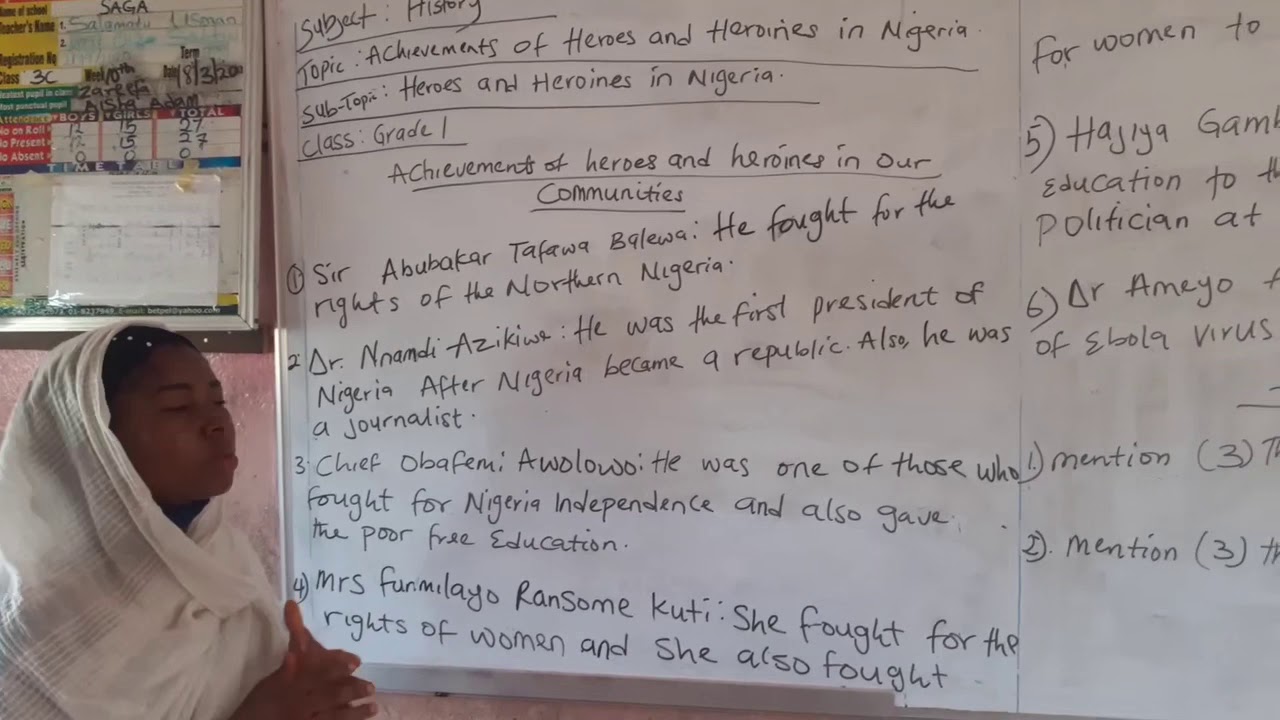 SAGA
Name of school
Teacher's Name 1. Salamatu Usman
2.
Registration No
Term
Class 3C Week 10th Date 18/3/20
Neatest pupil in class Zareefa
Most punctual pupil Aisha Adam
Attendance BOYS GIRLS TOTAL
No on Roll 12 15 27
No Present 12 15 27
No Absent 0 0 0
TIME TABLE
01-8237949, E-mail: betpel@yahoo.com
Subject: History
Topic: Achievements of Heroes and Heroines in Nigeria.
Sub-Topic: Heroes and Heroines in Nigeria.
Class: Grade 1
Achievements of heroes and heroines in our
Communities
① Sir Abubakar Tafawa Balewa: He fought for the
rights of the Northern Nigeria.
2. Dr. Nnamdi Azikiwe: He was the first president of
Nigeria After Nigeria became a republic. Also, he was
a journalist.
3. Chief Obafemi Awolowo: He was one of those who
fought for Nigeria Independence and also gave
the poor free Education.
4) Mrs Funmilayo Ransome Kuti: She fought for the
rights of women and She also fought
For women to
5) Hajiya Gamb
Education to th
politician at
6) Dr Ameyo
of Ebola virus
1.) mention (3) Th
2). mention (3) th